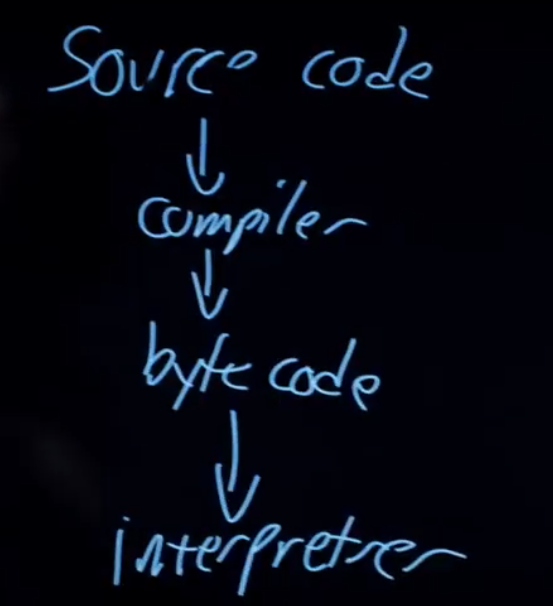 Source code
compiler
byte code
interpretrer